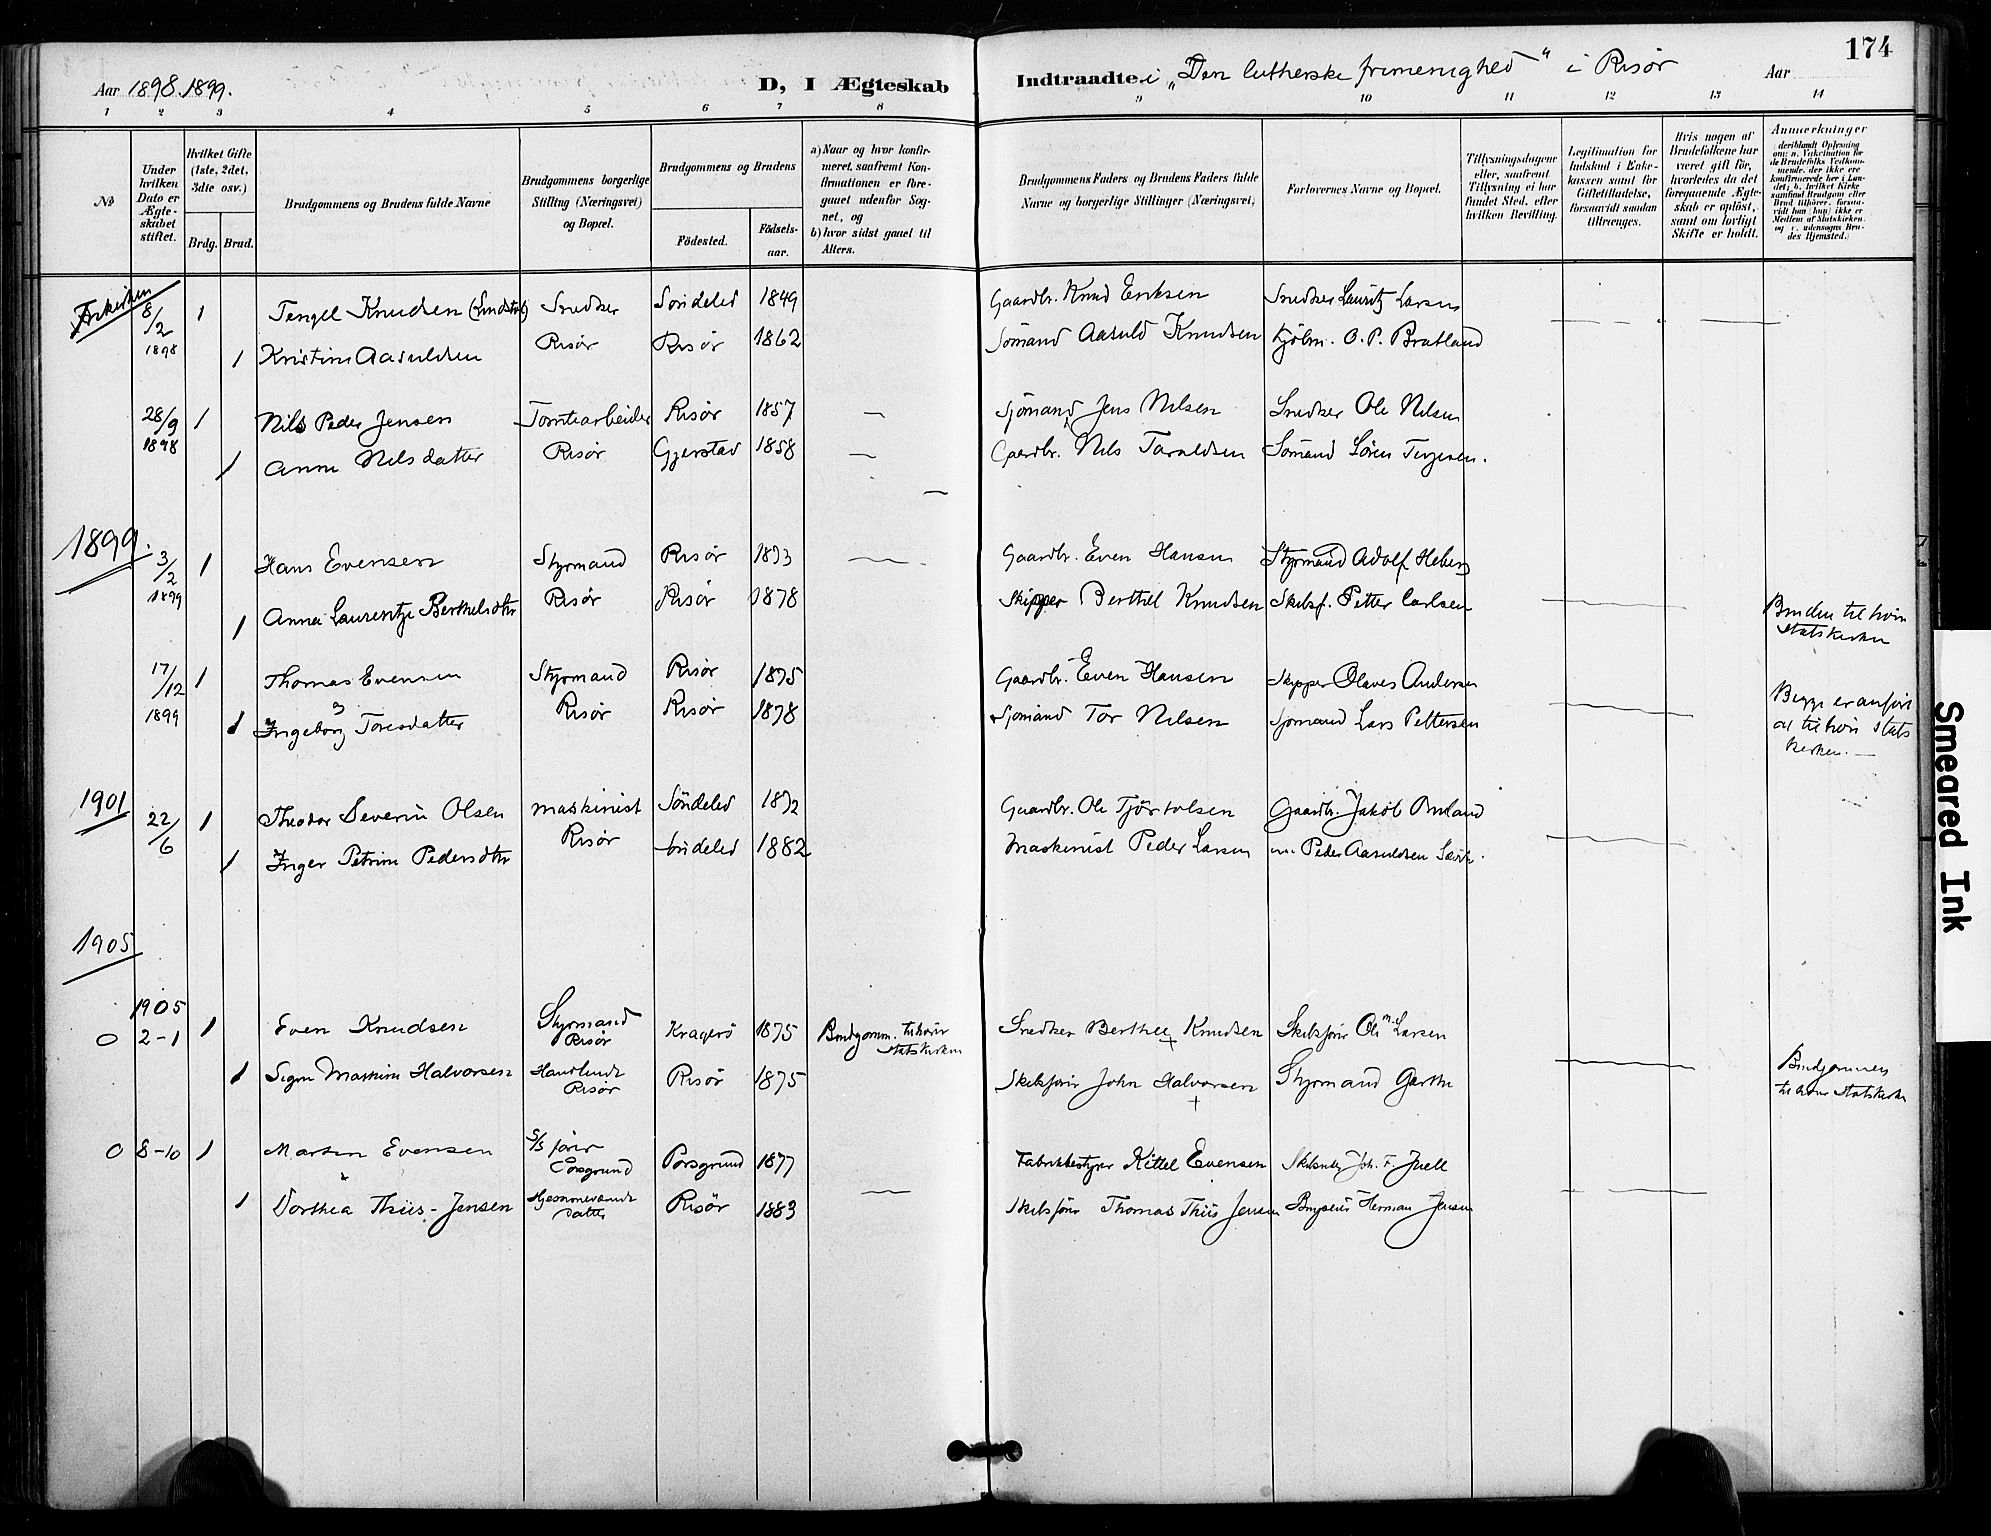 174
Aar 1898. 1899. D, I Ægteskab Indtraadte i „Den lutherske frimenighed“ i Risør Aar
1 2 3 4 5 6 7 8 9 10 11 12 13 14
№
Under hvilken Dato er Ægteskabet stiftet.
Hvilket Gifte (1ste, 2det, 3die osv.)
Brdg. Brud.
Brudgommens og Brudens fulde Navne
Brudgommens borgerlige Stilling (Næringsvei) og Bopæl.
Brudgommens og Brudens
Fødested. Fødselsaar.
a) Naar og hvor konfirmeret, saafremt Konfirmationen er foregaaet udenfor Sognet, og
b) hvor sidst gaaet til Alters.
Brudgommens Faders og Brudens Faders fulde Navne og borgerlige Stillinger (Næringsvei)
Forlovernes Navne og Bopæl.
Tillysningsdagene eller, saafremt Tillysning ei har fundet Sted, efter hvilken Bevilling.
Legitimation for Indskud i Enkekassen samt for Giftetilladelse, forsaavidt saadan tiltrænges.
Hvis nogen af Brudefolkene har været gift før, hvorledes da det foregaaende Ægteskab er opløst, samt om lovligt Skifte er holdt.
Anmerkninger
(deriblandt Oplysning om: a. Vakcination for de Brudefolks Vedkommende, der ikke ere konfirmerede her i Landet; b. hvilket Kirkesamfund Brudgom eller Brud tilhører, forsaavidt han (hun) ikke er Medlem af Statskirken, og c. udensogns Brudes Hjemsted.)
8/2 1898 1 Tengel Knudsen Snedker Søndeled 1849 Gaardbr. Knud Eriksen Snedker Lauritz Larsen
1 Kristine Aasuldsen Risør Risør 1862 Sømand Aasuld Knudsen Kjøbm. O. P. Bratland
28/9 1898 1 Nils Peder Jensen Tomtearbeider Risør 1857 — Sjømand Jens Nilsen Snedker Ole Nilsen
1 Anne Nilsdatter Risør Gjerstad 1858 — Gaardbr. Nils Taraldsen Sømand Søren Terjesen.
1899.
3/2 1899 1 Hans Evensen Styrmand Risør 1873 — Gaardbr. Even Hansen Styrmand Adolf Heberg
1 Anna Laurentze Berthelsdtr Risør Risør 1878 Skipper Berthel Knudsen Skibsf. Petter Carlsen Bruden tilhører
Statskirken
17/12 1899 1 Thomas Evensen Styrmand Risør 1875 Gaardbr. Even Hansen Skipper Olaves Andersen
1 Ingeborg Toresdatter Risør Risør 1878 Sjømand Tor Nilsen Sjømand Lars Pettersen Begge er anført
at tilhøre Stats
kirken. —
1901
22/6 1 Theodor Severin Olsen Maskinist Søndeled 1872 Gaardbr. Ole Tjørtolsen Gaardbr. Jakob
1 Inger Petrine Pedersdtr Risør Søndeled 1882 Maskinist Peder Larsen Peder Aasuldsen
1905
1905
0 2-1 1 Even Knudsen Styrmand Risør Kragerö 1875 Brudgomm. tilhører Statskirken Snedker Berthel Knudsen Skibsfører Ole M. Larsen
1 Signe Mathine Halvorsen Risør Risør 1875 Skibsfører John Halvorsen Styrmand Garthe Brudgommen
tilhører Statskirken
0 8-10 1 Martin Evensen S/S fører Porsgrund Porsgrund 1877 Fabrikbestyrer Kittel Evensen Joh. F. Juell
1 Dorthea Thiis-Jensen Hjemmeværende datter Risør 1883 — Skibsfører Thomas Thiis Jensen Herman Jensen
Smeared Ink